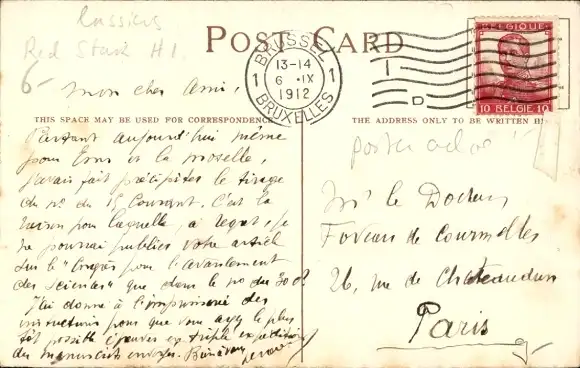 Cassiers
Red Star H 1.
6-
POST CARD
BRUSSEL
1 13-14 1
6 IX
1912
BRUXELLES
I
D
BELGIQUE
10 BELGIE 10
Mon cher Ami,
THIS SPACE MAY BE USED FOR CORRESPONDENCE
THE ADDRESS ONLY TO BE WRITTEN H
Partant aujourd'hui même
pour Ems et la Moselle,
j'avais fait précipiter le tirage
du no. du 15 Courant. C'est la
raison pour laquelle, à regret, je
ne pourrai publier votre article
sur le "Congrès pour l'avancement
des Sciences" que dans le no du 30 ct
J'ai donné à l'imprimerie des
instructions pour que vous ayez le plus
tôt possible épreuves en triple expédition
du manuscrit envoyé. Bien à vous
Mr le Docteur
Foveau de Courmelles
26, rue de Châteaudun
Paris